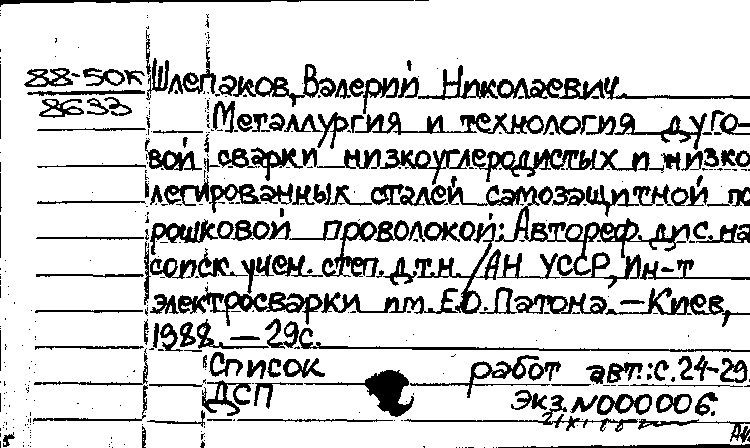 88-50к Шлепаков, Валерий Николаевич.
8633
Металлургия и технология дуго-
вой сварки низкоуглеродистых и низко
легированных сталей самозащитной по
рошковой проволокой: Автореф. дис. на
соиск. учен. степ. д.т.н. /АН УССР, Ин-т
электросварки им. Е.О. Патона. — Киев,
1988. — 29с.
Список работ авт.: с. 24-29
ДСП Экз. N000006.